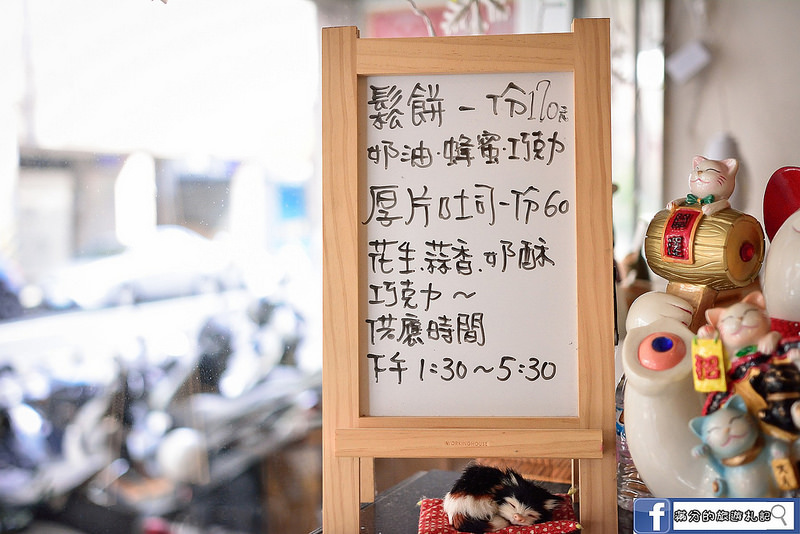 鬆餅－一份170元
奶油.蜂蜜.巧克力
厚片吐司-一份60
花生.蒜香.奶酥
巧克力～
供應時間
下午1:30～5:30
滿分的旅遊札記